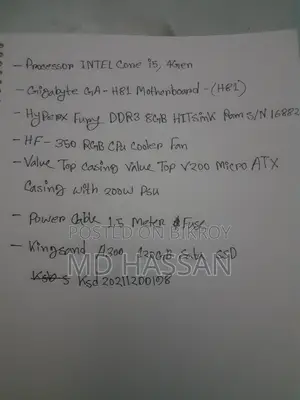 - Processor INTEL Core i5, 4Gen
- Gigabyte GA-H81 Motherboard-(H81)
- Hyperx Fury DDR3 8GB HITsink Ram S/N 16882
- HF-350 RGB CPU Cooler Fan
- Value Top Casing Value Top V200 Micro ATX
Casing with 200W Psu
- Power Cable 1.5 Meter Fuse
POSTED ON BIKROY
- Kingsand A300 SSD
MD HASSAN
Ksd 20211200198